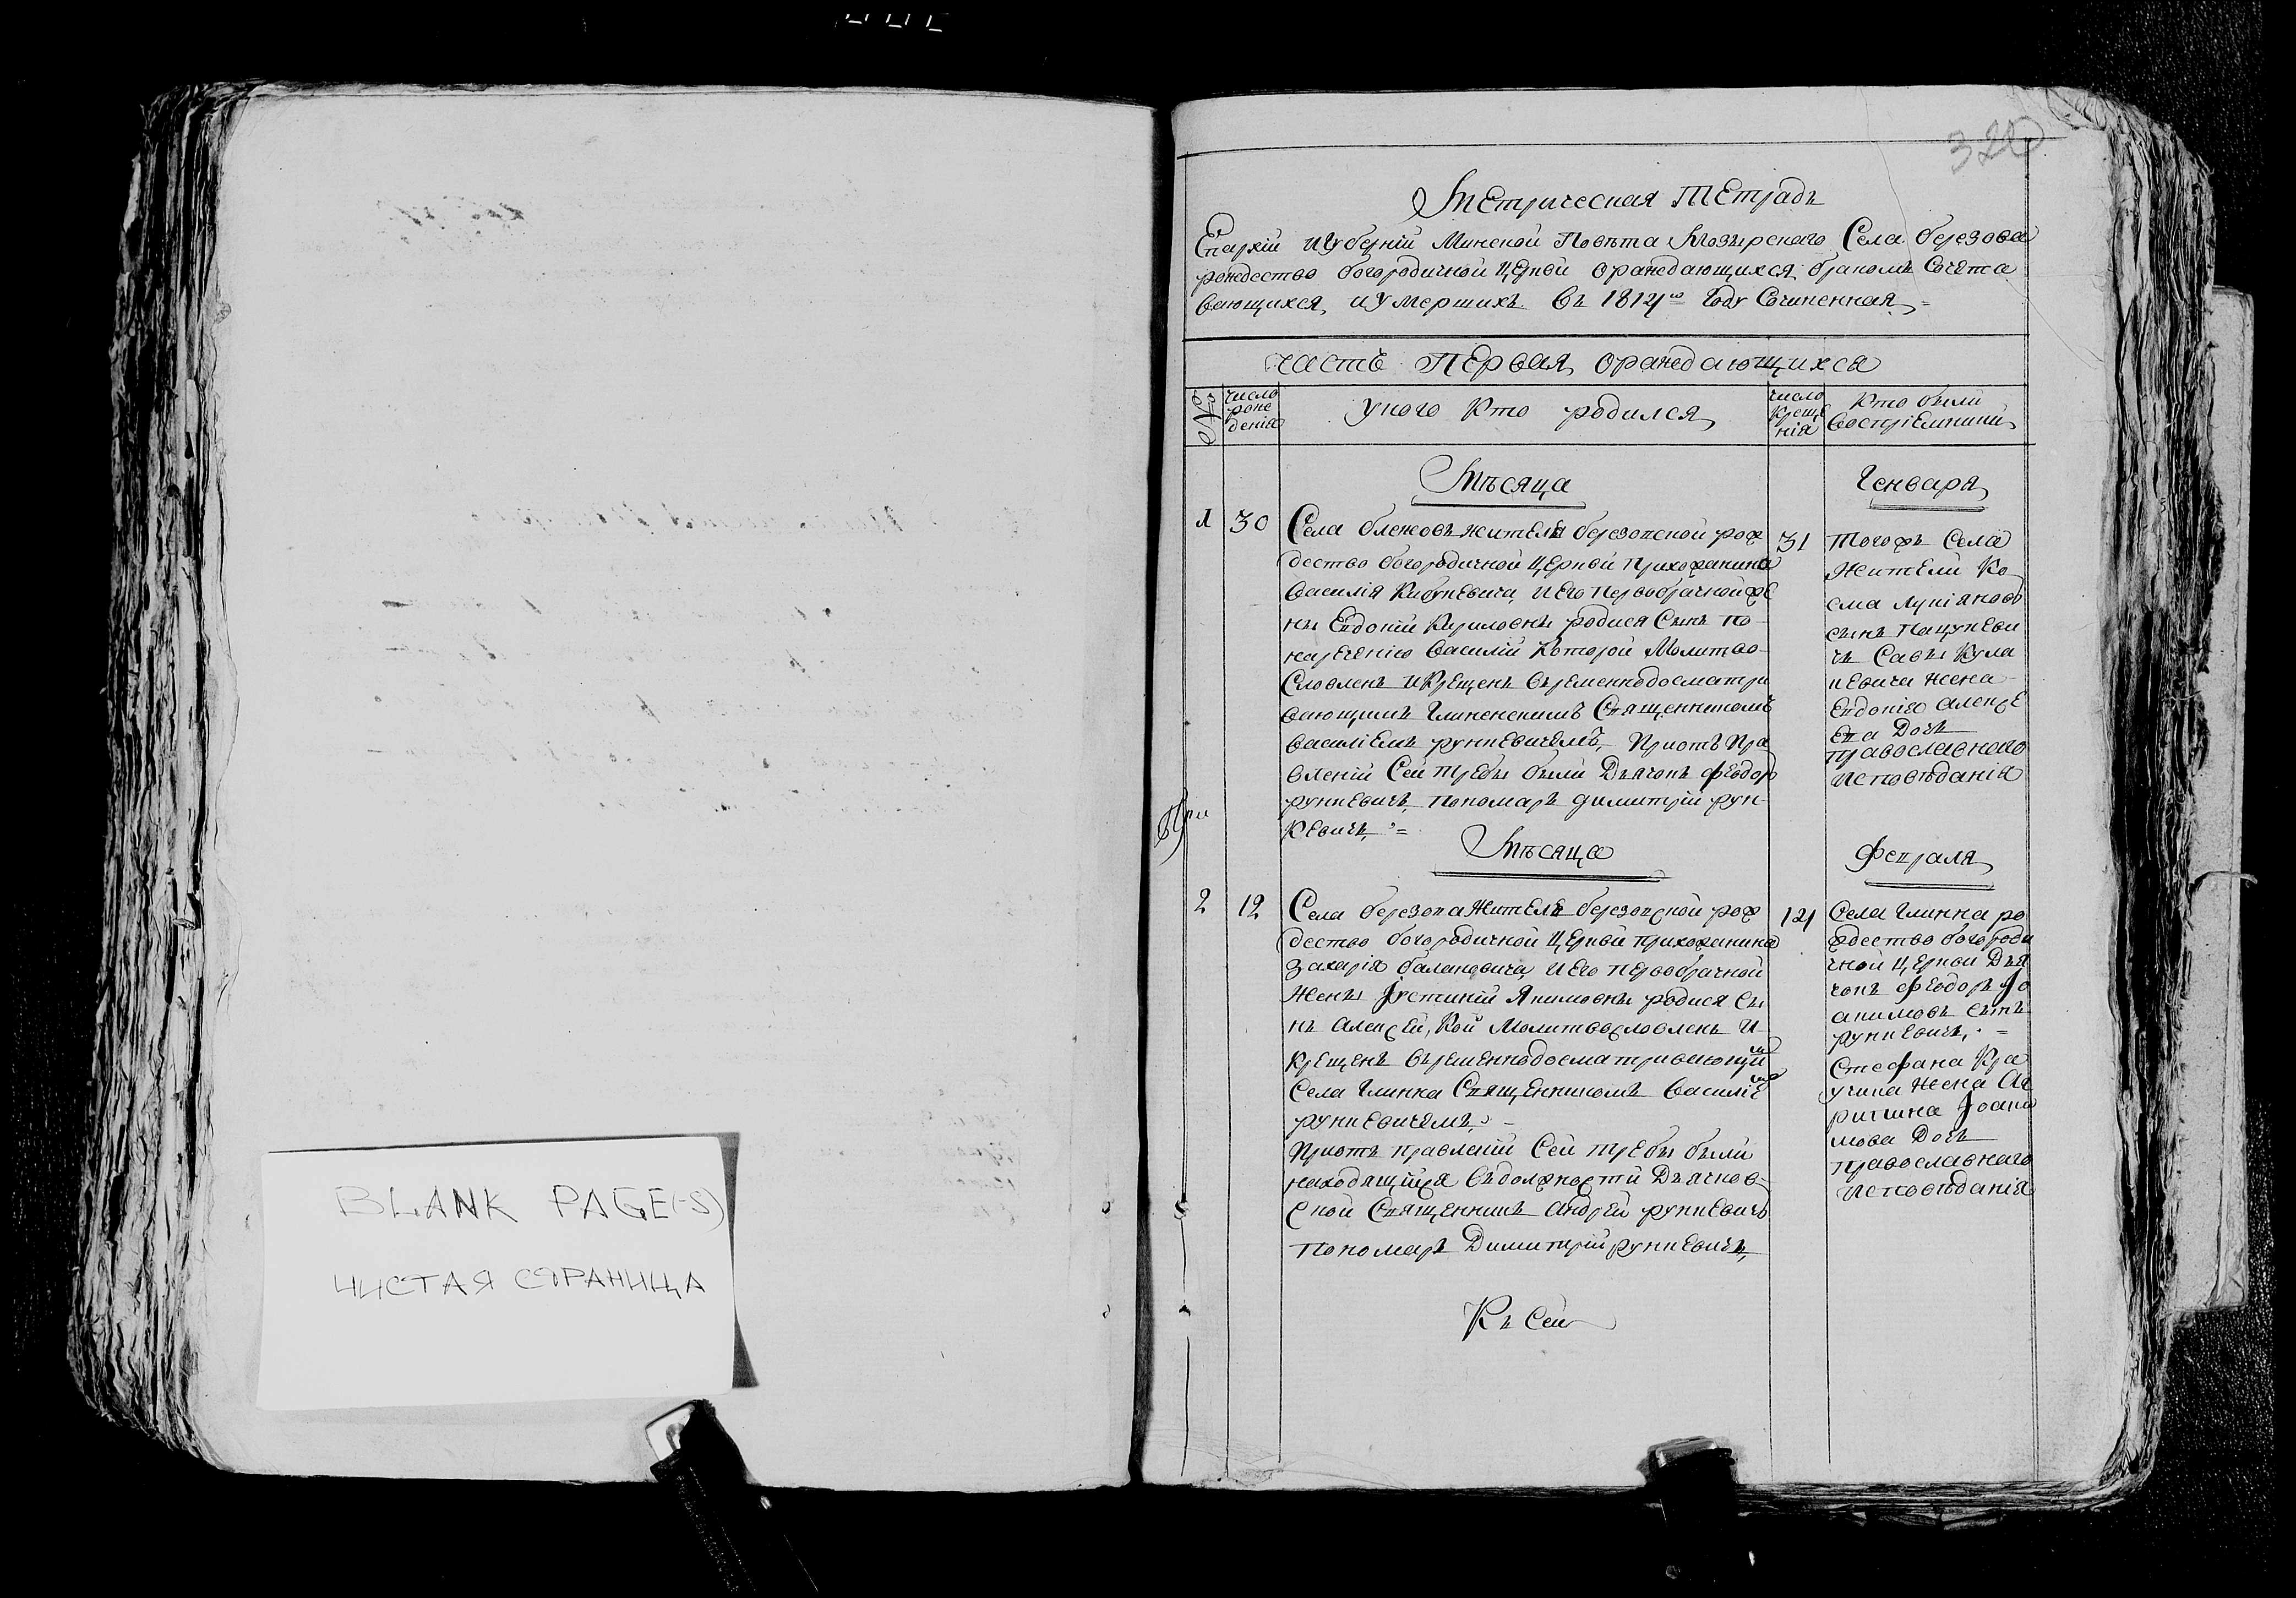 BLANK PAGE(-S)
ЧИСТАЯ СТРАНИЦА
320
Метрическая Тетрадь
Епархіи и Губерніи Минской Повѣта Мозырскаго Села березова
рождество богородичной церкви о раждающихся, бракомъ Сочета
вающихся, и умершихъ въ 1814го Году Сочиненная
часть Первая, о раждающихся
№
число рож денія
у кого Кто родился
число Креще нія
Кто были воспріемники
Мѣсяца
Генваря
1 30
Села жителя березовской рож
дество богородичной Церкви прихожанина
василія и его первобрачной же
ны Евдокіи Кириловны родися Сынъ по
наречению василій Которой Молитво
Словленъ и Крещенъ временнодосматри
вающимъ Глинкенскимъ Священникомъ
василіемъ рункевичемъ, При отъ Пра
вленіи Сей требы были Дьячокъ феодор
рункевичь, пономарь димитрій рун
кевичь,
31
Тогожъ Села
Жители Ко
сма
сынъ Пацукеви
чь Савы Кула
кевича жена
Евдокія алекѣе
ева Дочь
православнаго
исповѣданія
При
Мѣсяца
Февраля
2 12
Села березова Жителя березовской рож
дество богородичной Церкви прихожанина
Захарія балановича, и его первобрачной
Жены Іустиніи Якимовны родися Сы
нъ алексѣй, Кой Молитвословленъ и
Крещенъ временнодосматривающим
Села Глинка Священникомъ василіем
рункевичемъ,
При отъ правленіи Сей требы были
находящийся въ должности Дьячков
ской Священникъ андрей рункевичь
пономарь Димитрій рункевичь,
14
Села Глинка ро
ждество богороди
чной Церкви Дья
чокъ феодоръ Іо
акимовъ сынъ
рункевичь,
Стефана Кра
учика жена
Іоаки
мова Дочь
православнаго
исповѣданія
Къ Сей